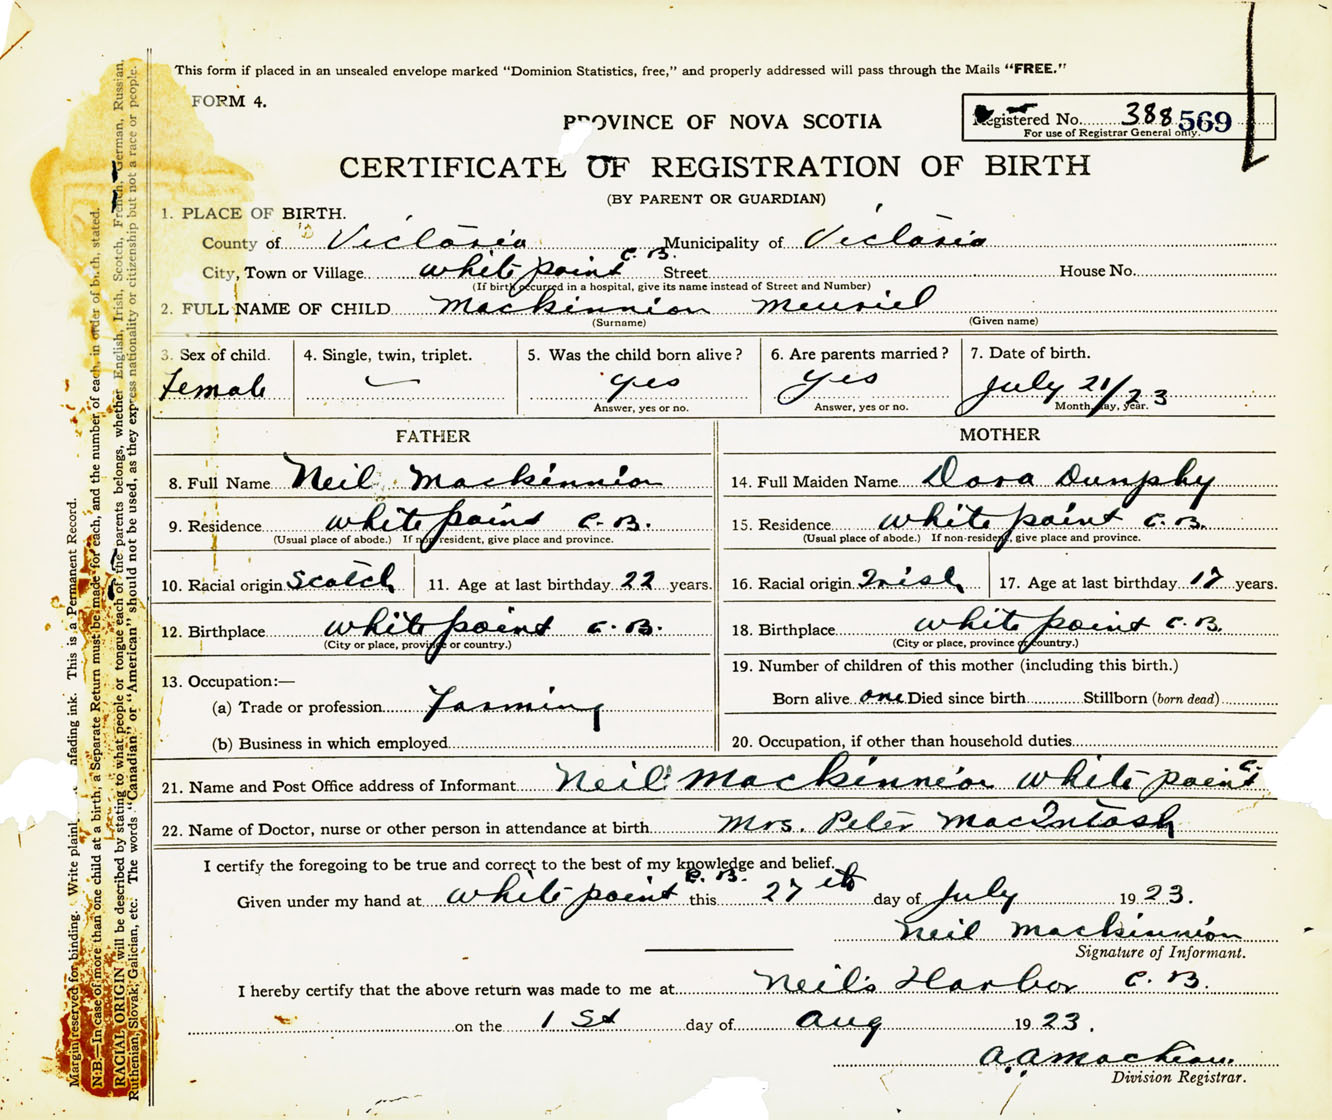 This form if placed in an unsealed envelope marked "Dominion Statistics, free," and properly addressed will pass through the Mails "FREE."
FORM 4.
PROVINCE OF NOVA SCOTIA
Registered No. 388 569
For use of Registrar General only.
CERTIFICATE OF REGISTRATION OF BIRTH
(BY PARENT OR GUARDIAN)
1. PLACE OF BIRTH.
County of Victoria Municipality of Victoria
City, Town or Village White point C. B. Street House No.
(If birth occurred in a hospital, give its name instead of Street and Number)
2. FULL NAME OF CHILD Mackinnion Meuriel
(Surname) (Given name)
3. Sex of child. 4. Single, twin, triplet. 5. Was the child born alive? 6. Are parents married? 7. Date of birth.
Female yes yes July 21/23
Answer, yes or no. Answer, yes or no. Month, day, year.
FATHER MOTHER
8. Full Name Neil Mackinnion 14. Full Maiden Name Dora Dunphy
9. Residence White point C. B. 15. Residence White point C. B.
(Usual place of abode.) If non-resident, give place and province. (Usual place of abode.) If non-resident, give place and province.
10. Racial origin Scotch 11. Age at last birthday 22 years. 16. Racial origin Irish 17. Age at last birthday 17 years.
12. Birthplace White point C. B. 18. Birthplace White point C. B.
(City or place, province or country.) (City or place, province or country.)
13. Occupation:— 19. Number of children of this mother (including this birth.)
(a) Trade or profession Farming Born alive one Died since birth Stillborn (born dead)
(b) Business in which employed 20. Occupation, if other than household duties
21. Name and Post Office address of Informant Neil Mackinnion White point C.
22. Name of Doctor, nurse or other person in attendance at birth Mrs. Peter MacIntosh
I certify the foregoing to be true and correct to the best of my knowledge and belief.
Given under my hand at White point C. B. this 27th day of July 1923.
Neil Mackinnion
Signature of Informant.
I hereby certify that the above return was made to me at Neil's Harbor C. B.
on the 1st day of Aug 1923.
A. A.
Division Registrar.
Margin reserved for binding. Write plainl nfading ink. This is a Permanent Record.
N.B.—In case of more than one child at a birth, a Separate Return must be made for each, and the number of each, in order of birth, stated.
RACIAL ORIGIN will be described by stating to what people or tongue each of the parents belongs, whether English, Irish, Scotch, French, German, Russian,
Ruthenian, Slovak, Galician, etc. The words "Canadian" or "American" should not be used, as they express nationality or citizenship but not a race or people.